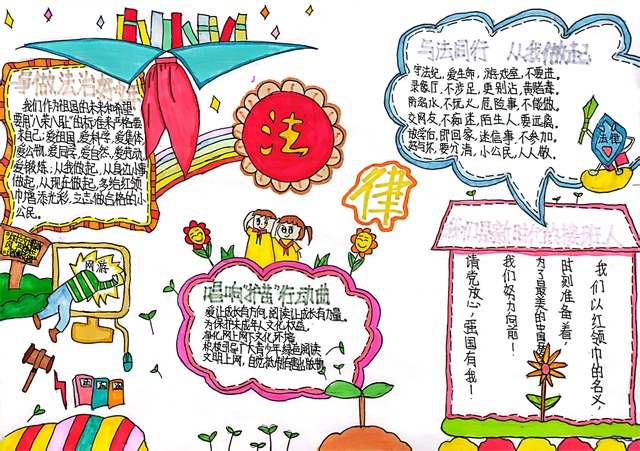 争做法治好少年
我们作为祖国的未来和希望
要用"八荣八耻"的标准来严格要
求自己:爱祖国,爱科学,爱集体,
爱公物,爱同学,爱自然,爱劳动,
爱锻炼;从我做起,从身边小事
做起,从现在做起,多给红领
巾增添光彩,立志做合格的小
公民。
法
律
与法同行 从我做起
守法纪,爱生命,游戏室,不要进。
录像厅,不涉足,更别沾,黄赌毒。
防溺水,不玩火,危险事,不能做。
交网友,不痴迷,陌生人,要远离。
放学后,即回家,迷信事,不参加。
好与坏,要分清,小公民,人人敬。
法律
网游
唱响"护苗"行动曲
爱让成长有方向,阅读让成长有力量。
为保护未成年人文化权益,
净化网上网下文化环境,
积极引导广大青少年绿色阅读
文明上网,自觉抵制有害出版物
我们是新时代的接班人
我们以红领巾的名义,
时刻准备着,
为了最美的中国梦
我们努力向前!
请党放心,强国有我!